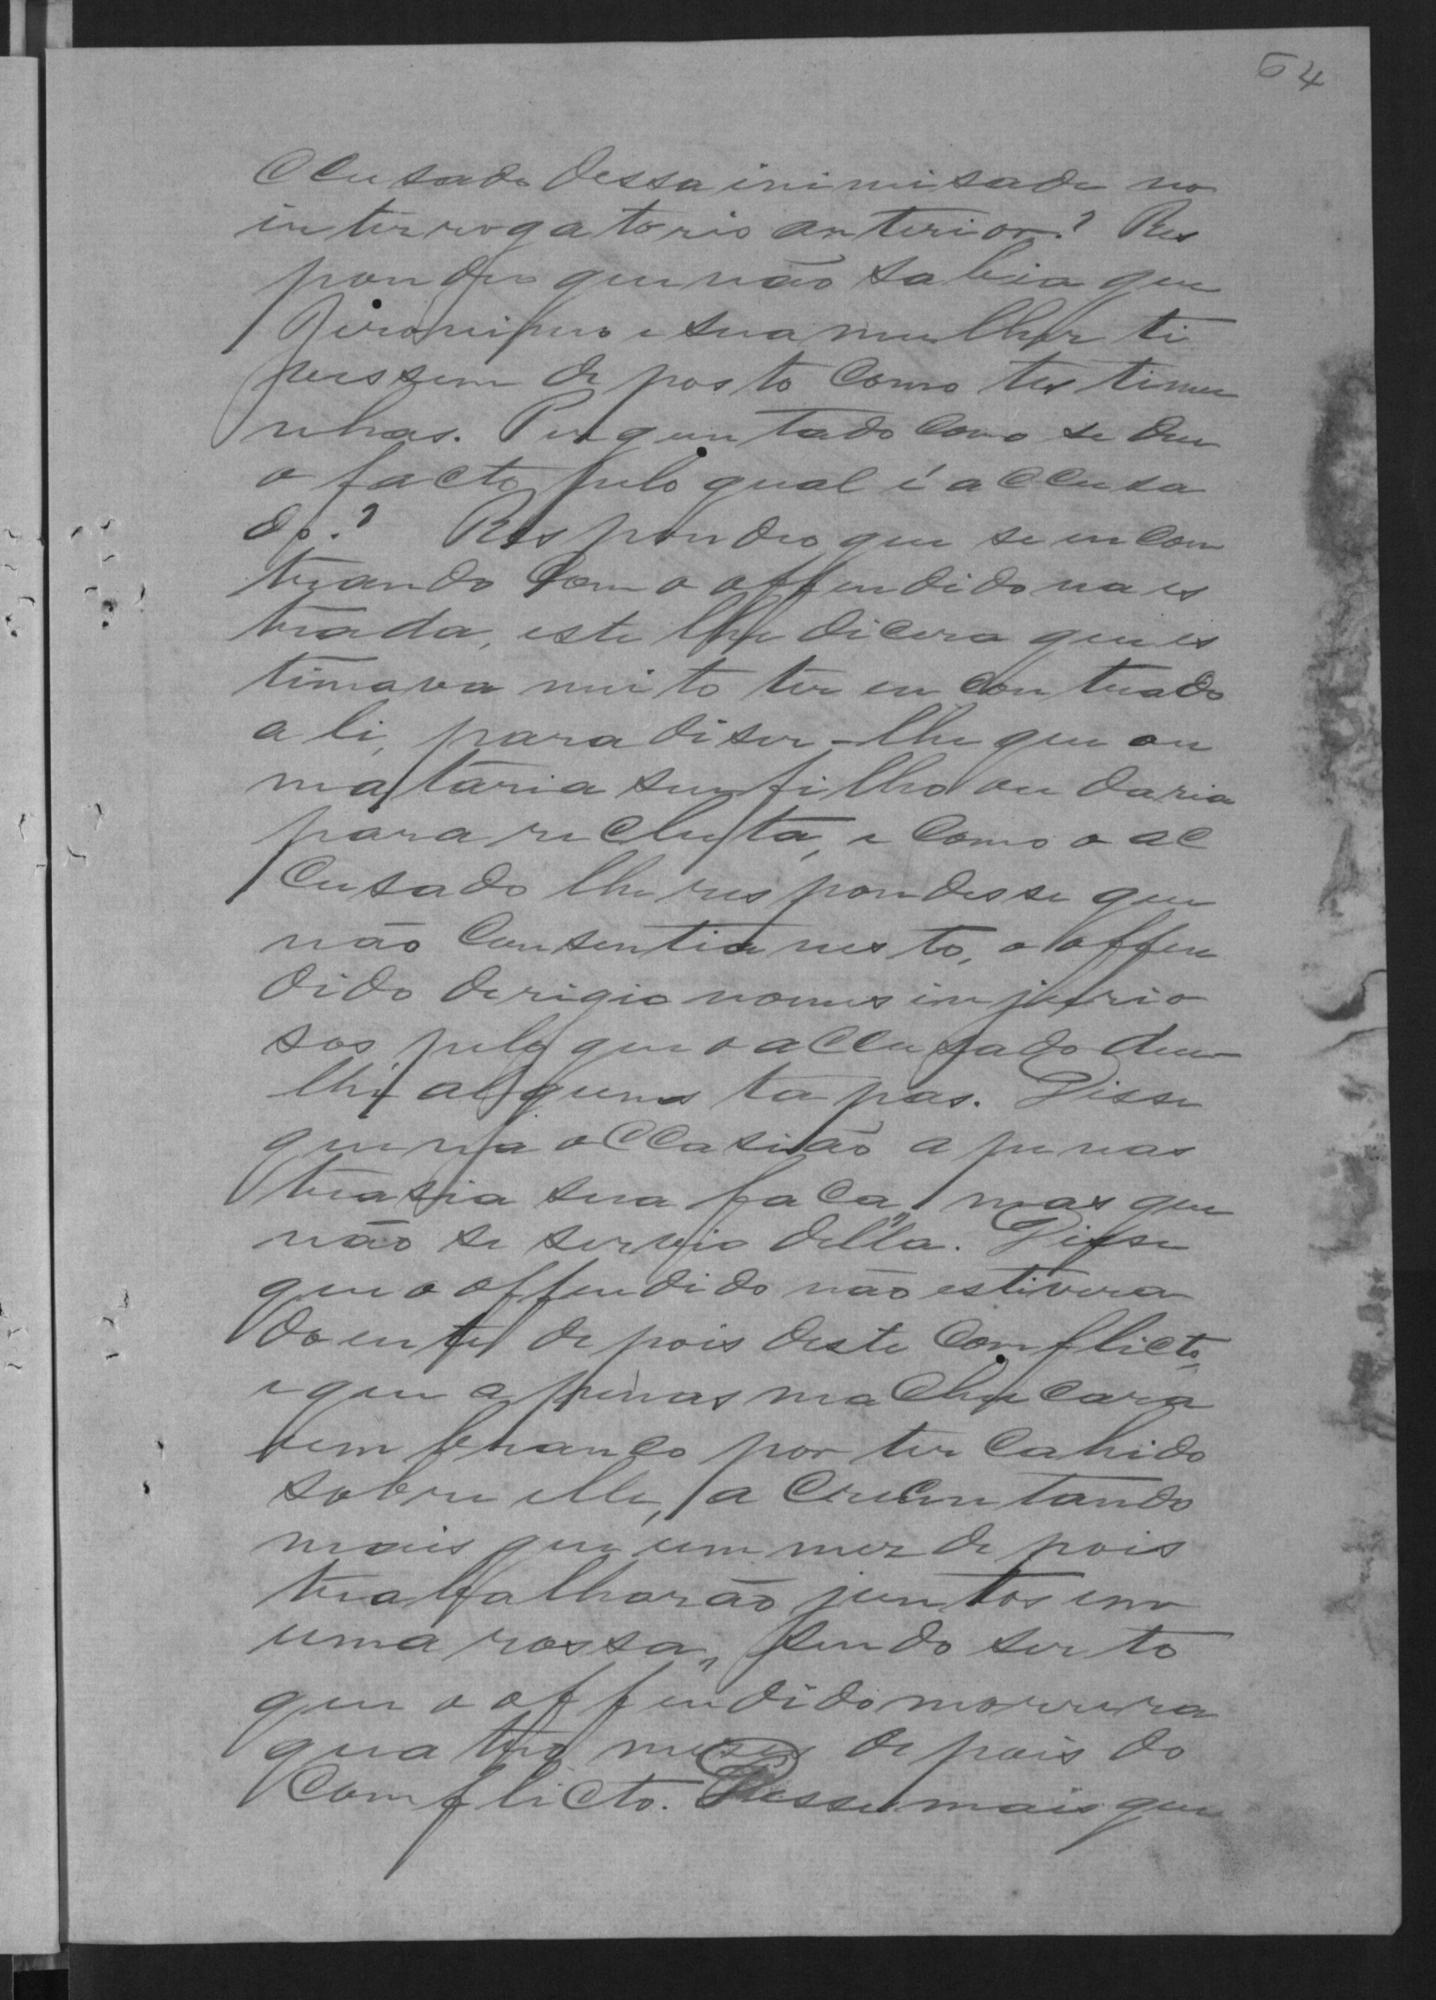 64
ccusado dessa inimisade no
interrogatorio anterior? Res
pondeo que não sabia que
Jeronimo e sua mulher ti
vessem deposto como testimu
nhas. Perguntado como se deu
o facto pelo qual é accusa
do? Respondeo que se encon
trando com o offendido na es
trada, este lhe dicera que es
timava muito ter encontrado
ali, para diser-lhe que ou
mataria seu filho ou daria
para recluta, e como o ac
cusado lhe respondesse que
não consentia nesto, o offen
dido derigio nomes injurio
sos pelo que o accusado deu-
lhe alguns tapas. Disse
que na occasião apenas
trasia sua faca, mas que
não se servio della. Disse
que o offendido não estivera
doente depois deste conflicto,
e que apenas machucara
um branco por ter cahido
sobre elle, acrecentando
mais que um mez depois
trabalharão juntos em
uma rossa, sendo serto
que o offendido morrera
quatro meses depois do
conflicto. Disse mais que